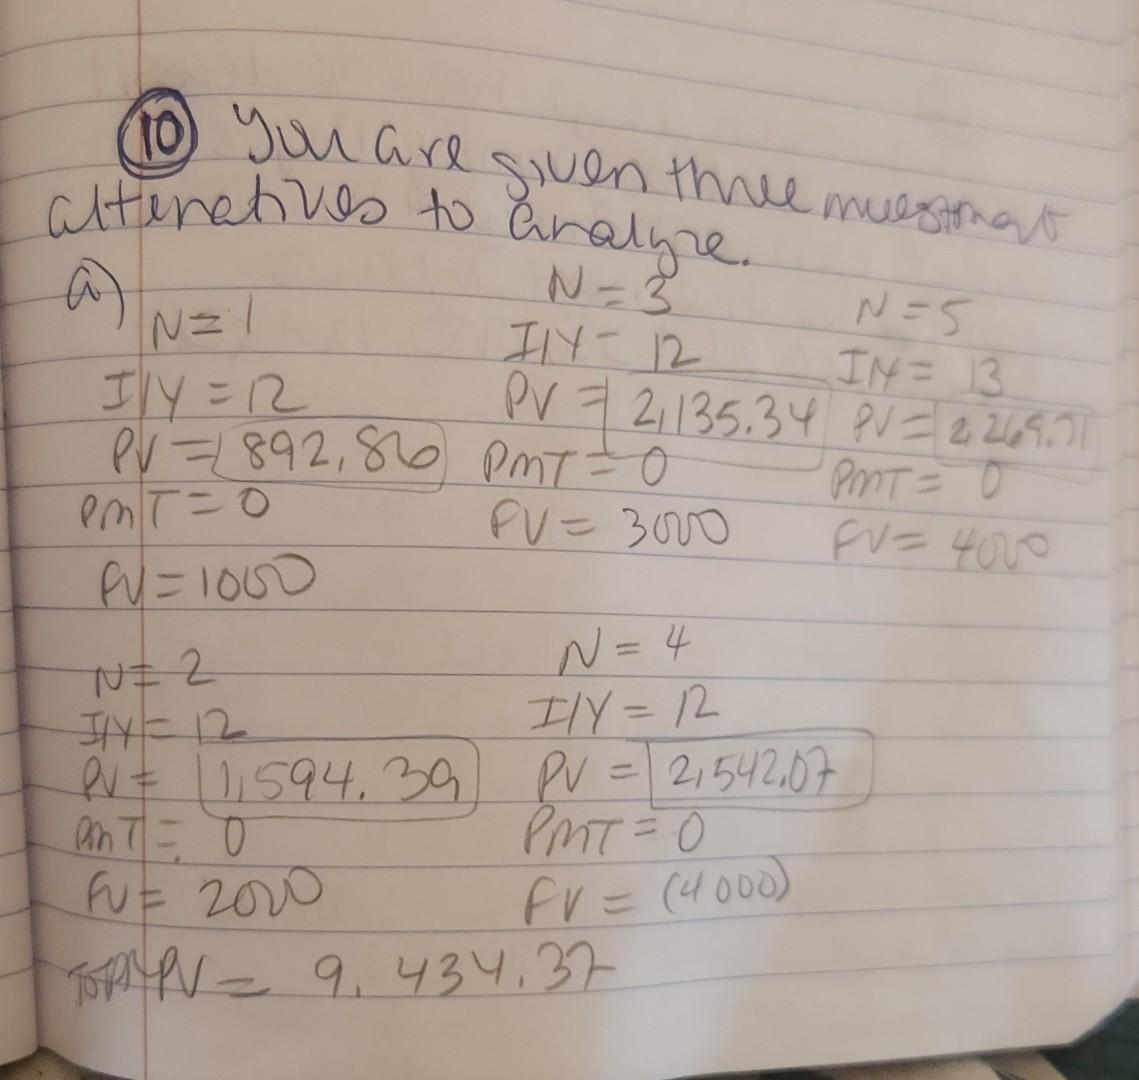 10 You are given three investment
alternatives to analyze.
a)
N = 1
I/Y = 12
PV = 892.86
PMT = 0
FV = 1000
N = 2
I/Y = 12
PV = 1,594.39
PMT = 0
FV = 2000
N = 3
I/Y = 12
PV = 2,135.34
PMT = 0
FV = 3000
N = 4
I/Y = 12
PV = 2,542.07
PMT = 0
FV = (4000)
N = 5
I/Y = 13
PV = 2,269.71
PMT = 0
FV = 4000
TOTAL PV = 9,434.37